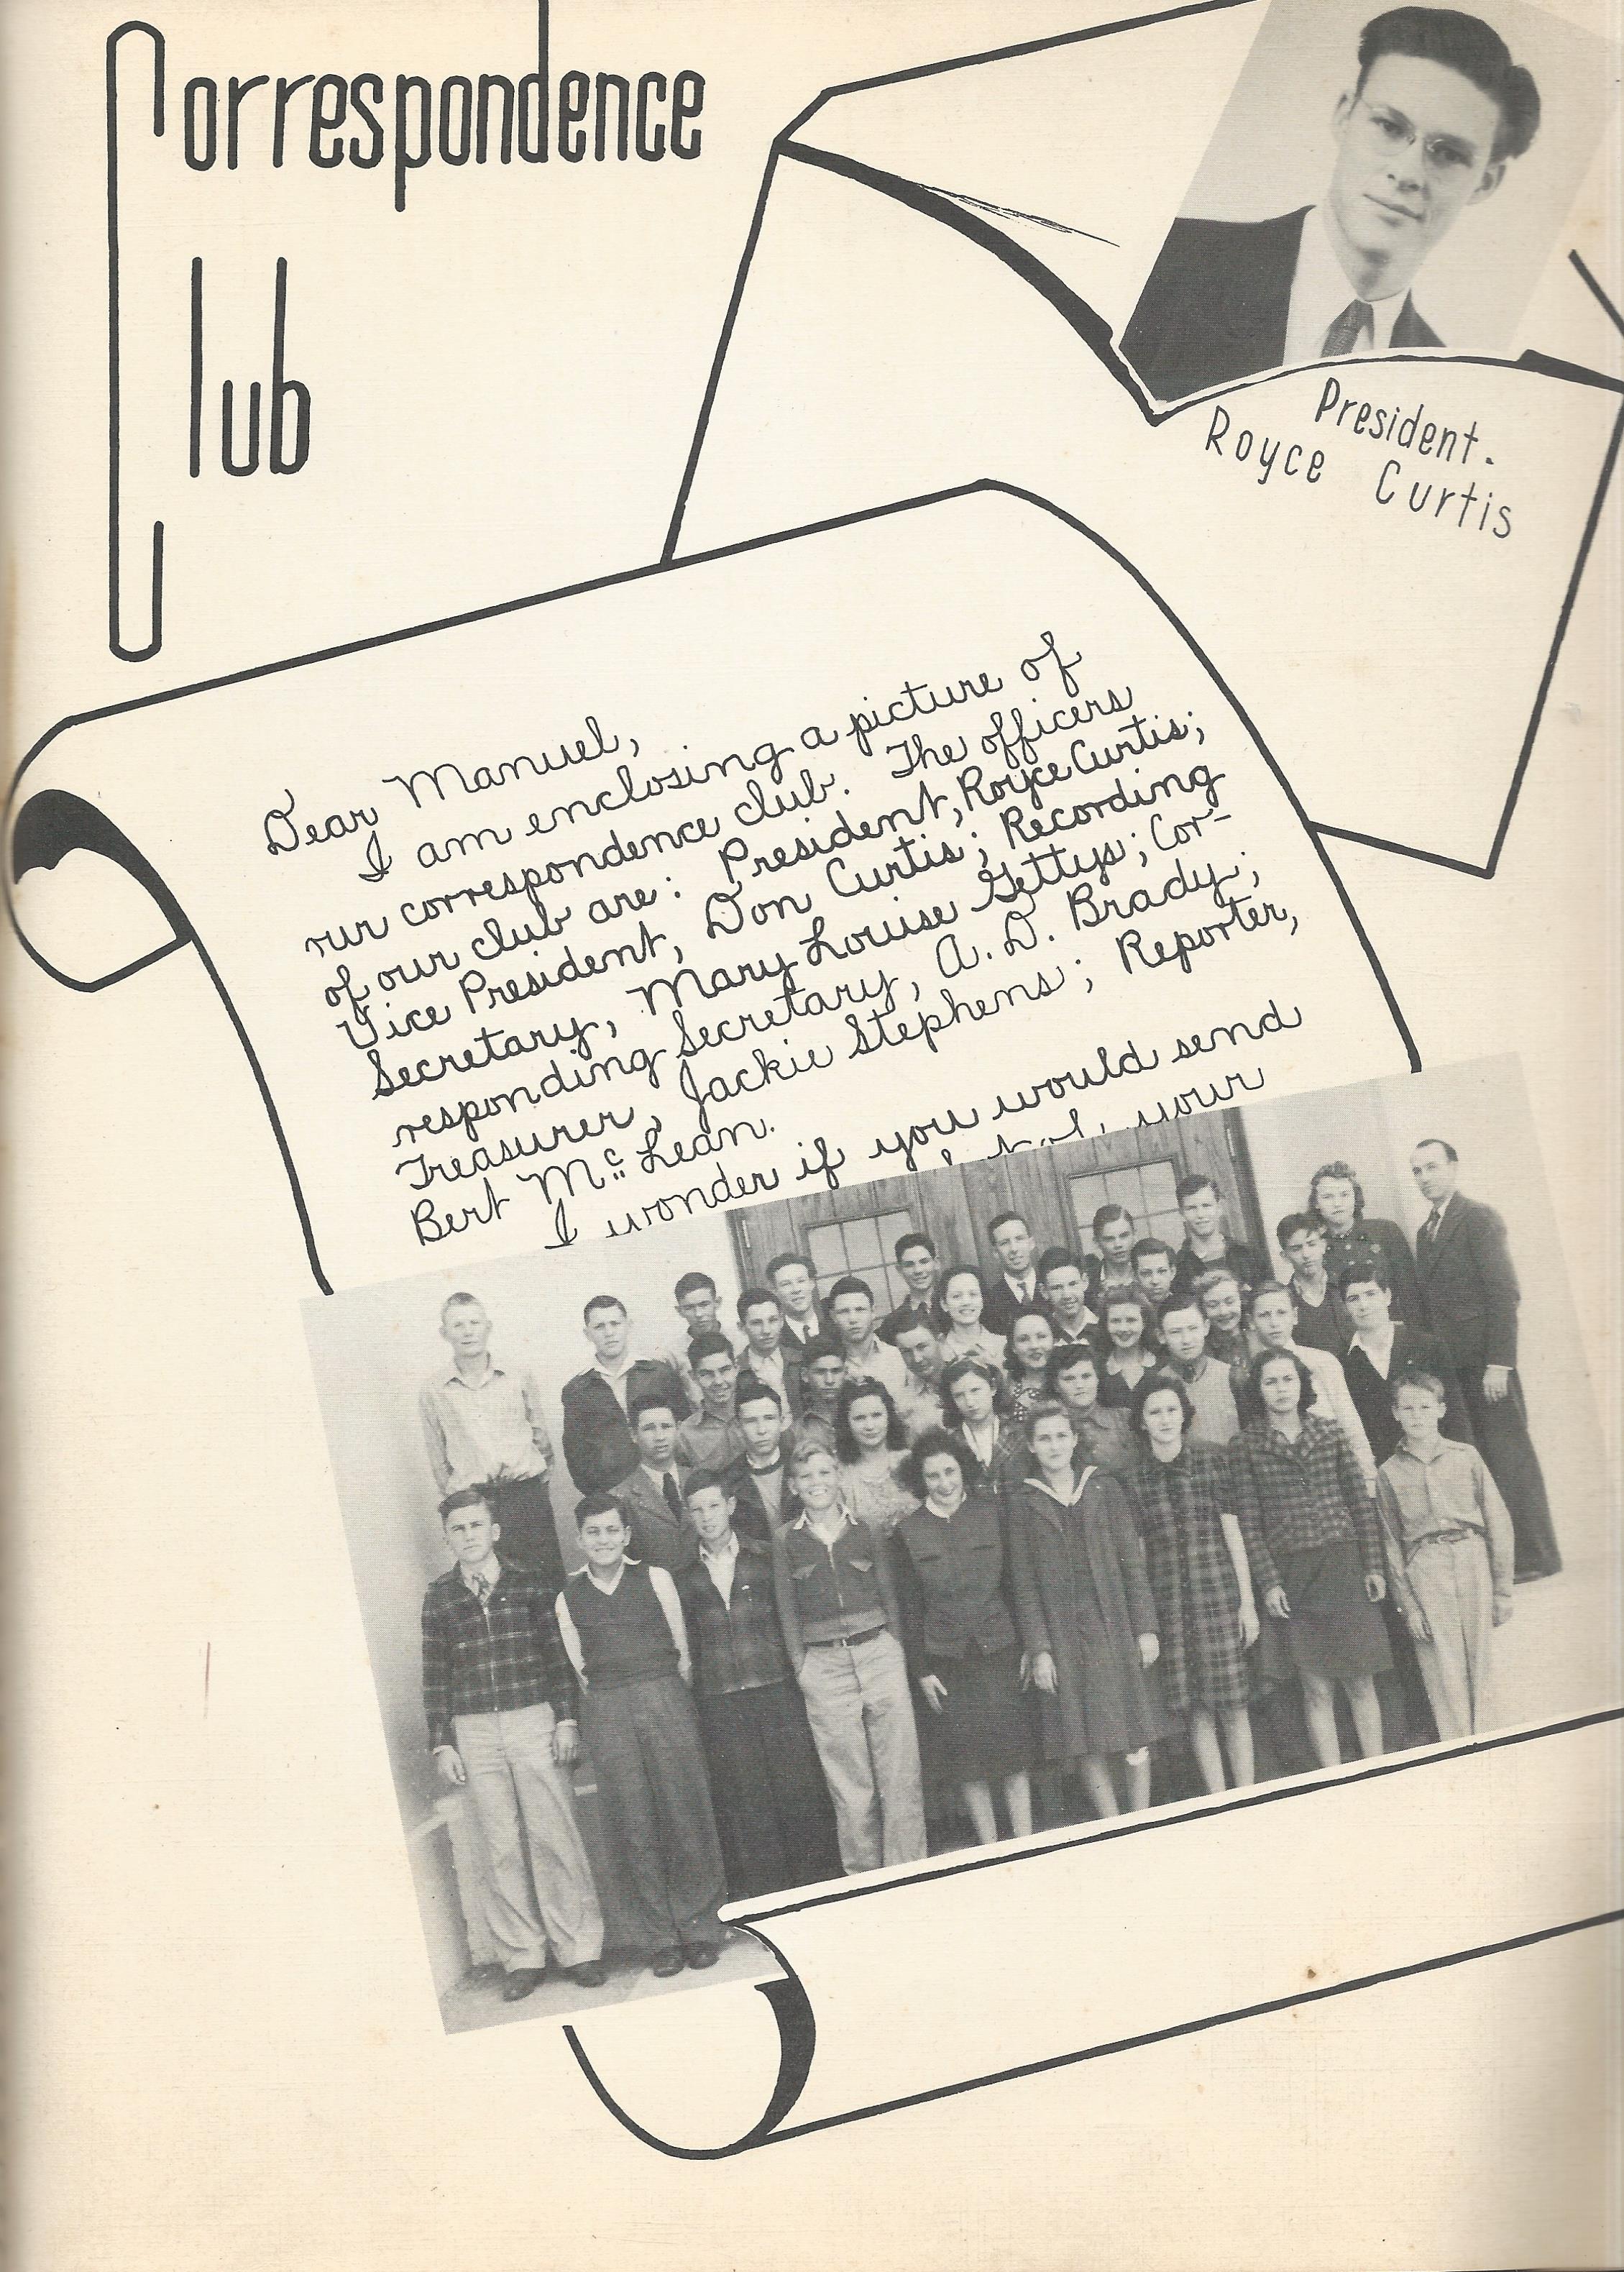 Correspondence
Club
President.
Royce Curtis
Dear Manuel,
I am enclosing a picture of
our correspondence club. The officers
of our club are: President, Royce Curtis;
Vice President, Don Curtis; Recording
Secretary, Mary Louise Gettys; Cor-
responding Secretary, A. D. Brady;
Treasurer, Jackie Stephens; Reporter,
Bert McLean.
I wonder if you would send
your